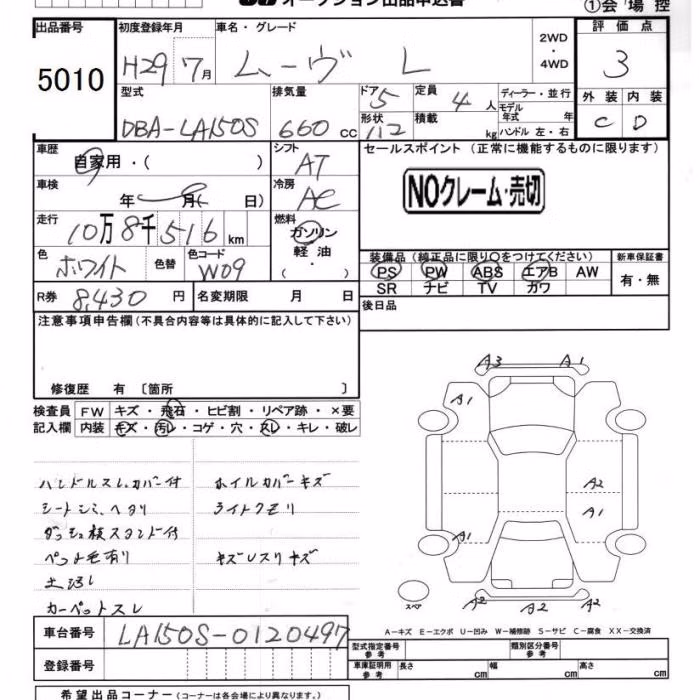 オークション出品申込書
①会 場 控
出品番号
5010
初度登録年月
H29 7月
車名・グレード
ムーヴ L
2WD
・
4WD
評価点
3
型式
DBA-LA150S
排気量
660 cc
ドア 5
形状 112
定員 4 人
積載 kg
ディーラー・並行
モデル年式 年
ハンドル 左・右
外装 内装
C D
車歴
自家用・( )
シフト
AT
セールスポイント (正常に機能するものに限ります)
NOクレーム・売切
車検
年 月( 日)
冷房
AC
走行
10万8千516 km
燃料
ガソリン
軽油
・( )
色
ホワイト
色替
色コード
W09
装備品 (純正品に限り○をつけてください)
PS PW ABS エアB AW
SR ナビ TV カワ
新車保証書
有・無
R券 8,430 円
名変期限 月 日
後日品
注意事項申告欄(不具合内容等は具体的に記入して下さい)
修復歴 有 〔箇所 〕
検査員 FW キズ・飛石・ヒビ割・リペア跡・×要
記入欄 内装 キズ・汚レ・コゲ・穴・スレ・キレ・破レ
ハンドルスレ、カバー付 ホイルカバーキズ
シートシミ、ヘタリ ライトクモリ
ダッシュ板スタンド付
ペット毛有り キズUスリキズ
カーペットスレ
A3 A1
A1
A2
A1
A2 A2 A2
スペア
A−キズ E−エクボ U−凹み W−補修跡 S−サビ C−腐食 XX−交換済
車台番号
LA150S-0120497
型式指定番号 参考
類別区分番号 参考
登録番号
車庫証明用 参考 長さ cm 幅 cm 高さ cm
希望出品コーナー (コーナーは各会場により異なります。)